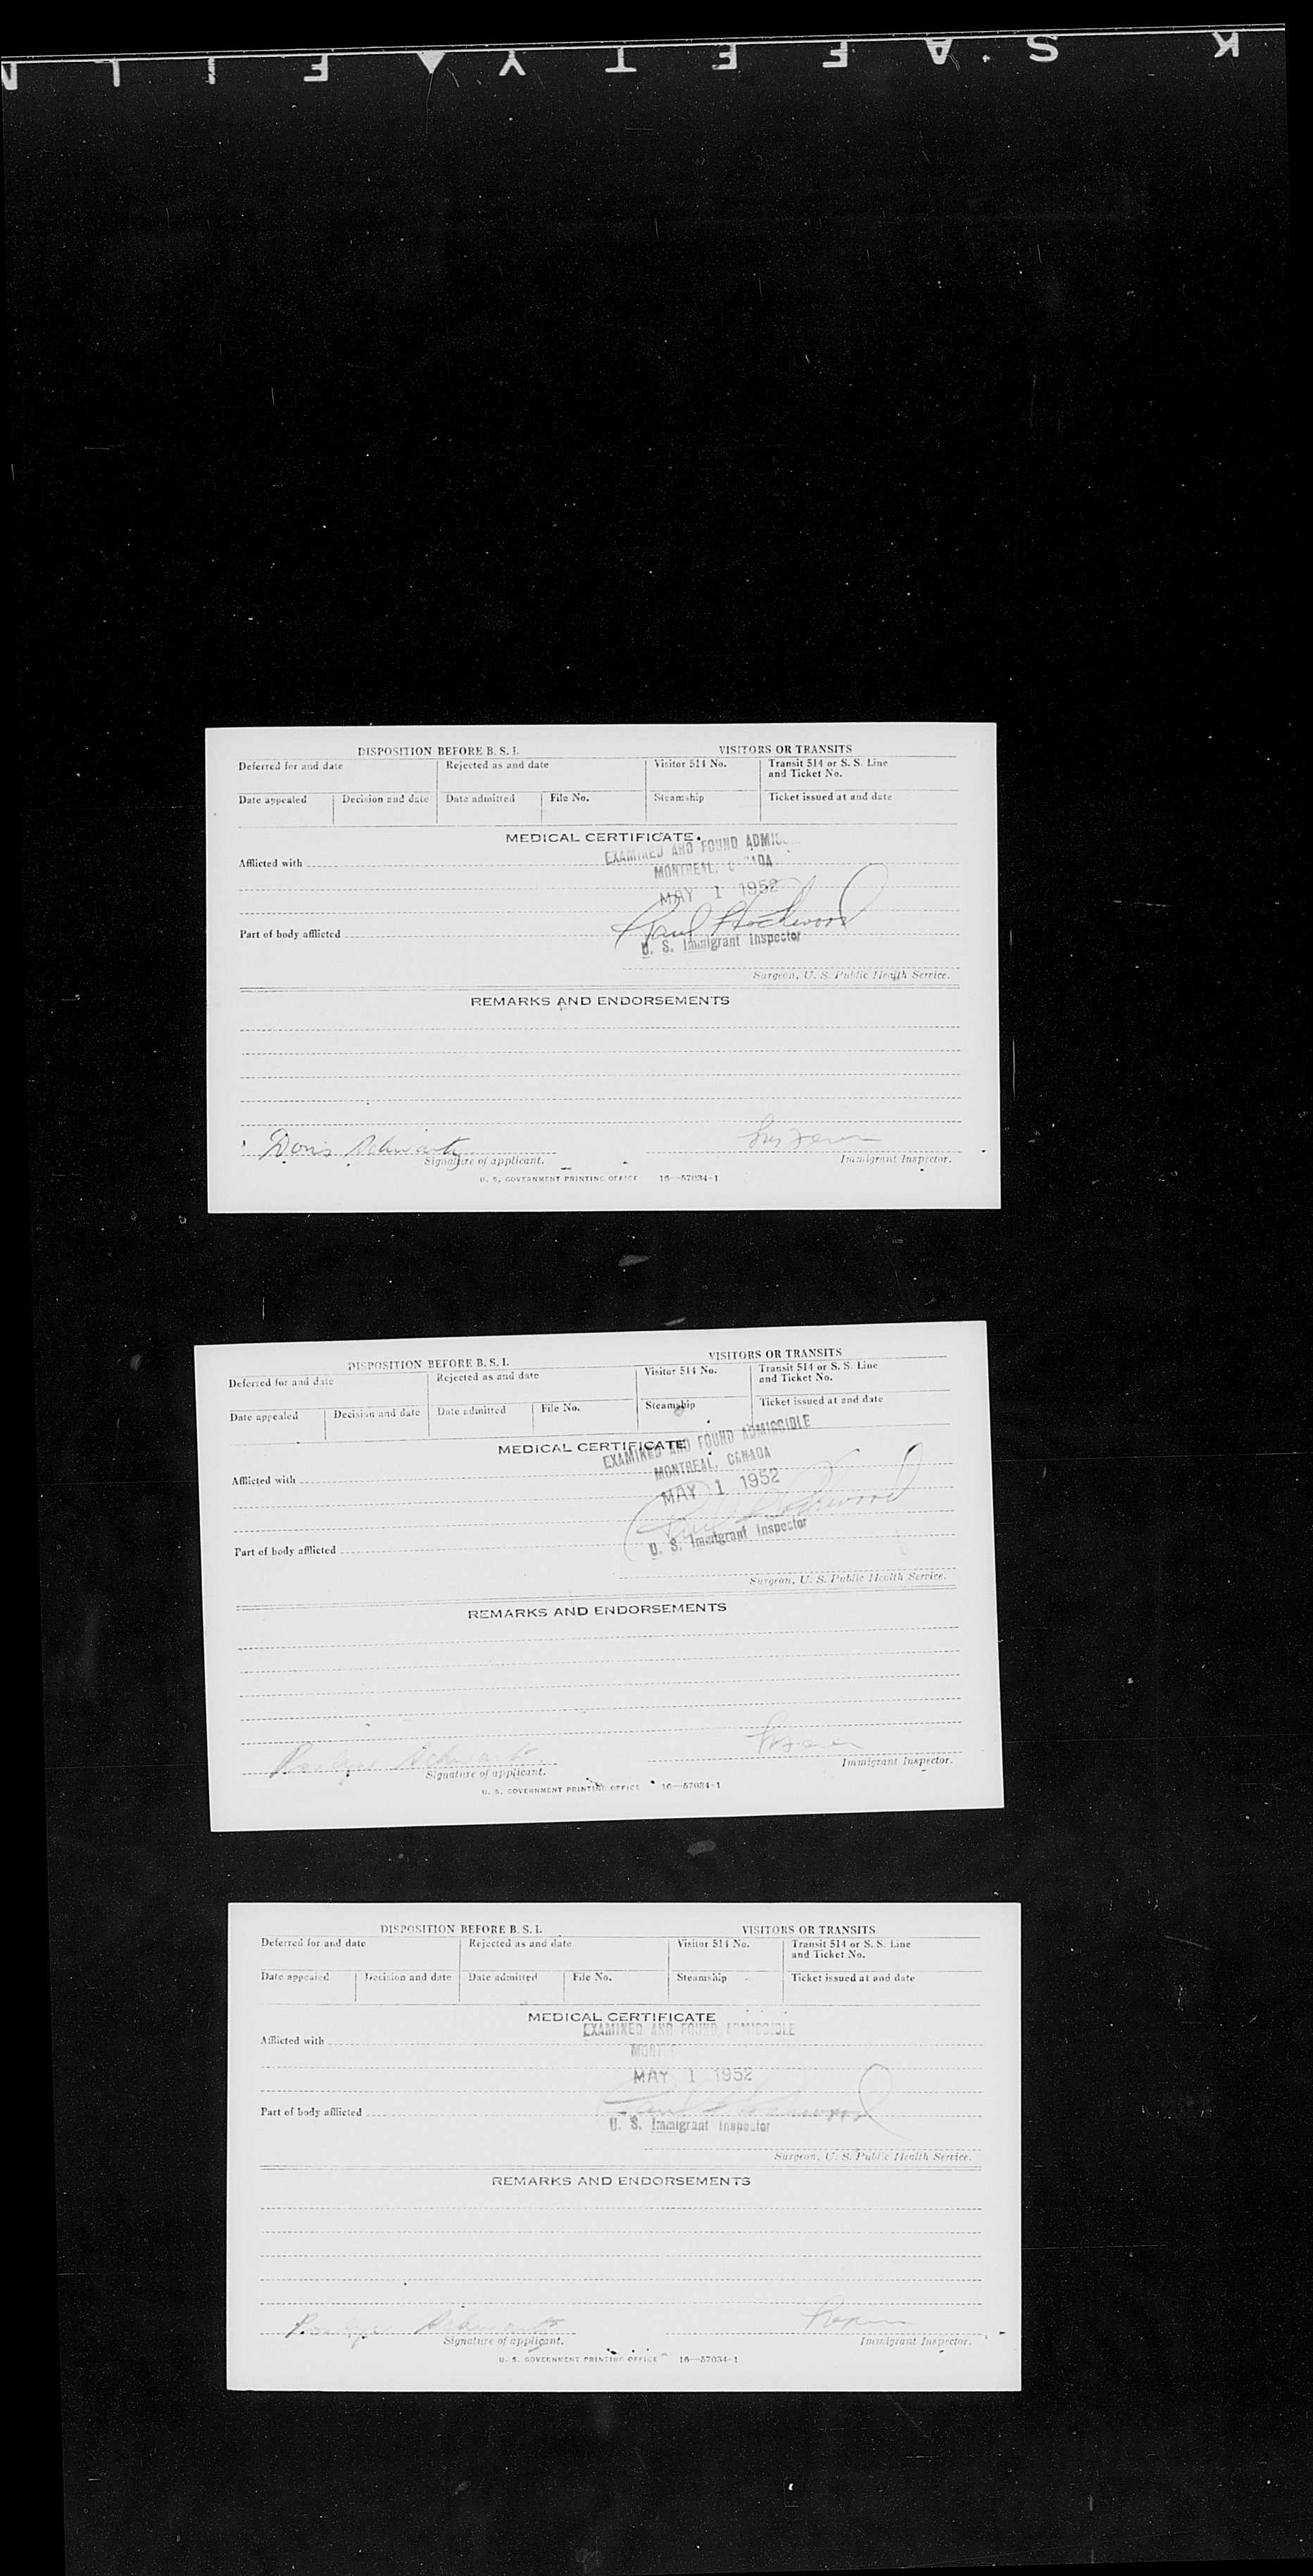 K SAFETY FILM
DISPOSITION BEFORE B. S. I. VISITORS OR TRANSITS
Deferred for and date Rejected as and date Visitor 514 No. Transit 514 or S. S. Line and Ticket No.
Date appealed Decision and date Date admitted File No. Steamship Ticket issued at and date
MEDICAL CERTIFICATE
EXAMINED AND FOUND
Afflicted with
MONTREAL, CANADA
MAY 1 1952
Part of body afflicted
U. S. Immigrant Inspector
Surgeon, U. S. Public Health Service.
REMARKS AND ENDORSEMENTS
Doris Schwartz
Signature of applicant. Immigrant Inspector.
U. S. GOVERNMENT PRINTING OFFICE 16—57034-1
DISPOSITION BEFORE B. S. I. VISITORS OR TRANSITS
Deferred for and date Rejected as and date Visitor 514 No. Transit 514 or S. S. Line and Ticket No.
Date appealed Decision and date Date admitted File No. Steamship Ticket issued at and date
MEDICAL CERTIFICATE
EXAMINED AND FOUND ADMISSIBLE
Afflicted with
MONTREAL, CANADA
MAY 1 1952
Part of body afflicted
U. S. Immigrant Inspector
Surgeon, U. S. Public Health Service.
REMARKS AND ENDORSEMENTS
Schwartz
Signature of applicant. Immigrant Inspector.
U. S. GOVERNMENT PRINTING OFFICE 16—57034-1
DISPOSITION BEFORE B. S. I. VISITORS OR TRANSITS
Deferred for and date Rejected as and date Visitor 514 No. Transit 514 or S. S. Line and Ticket No.
Date appealed Decision and date Date admitted File No. Steamship Ticket issued at and date
MEDICAL CERTIFICATE
EXAMINED AND FOUND ADMISSIBLE
Afflicted with
MAY 1 1952
Part of body afflicted
U. S. Immigrant Inspector
Surgeon, U. S. Public Health Service.
REMARKS AND ENDORSEMENTS
Schwartz
Signature of applicant. Immigrant Inspector.
U. S. GOVERNMENT PRINTING OFFICE 16—57034-1